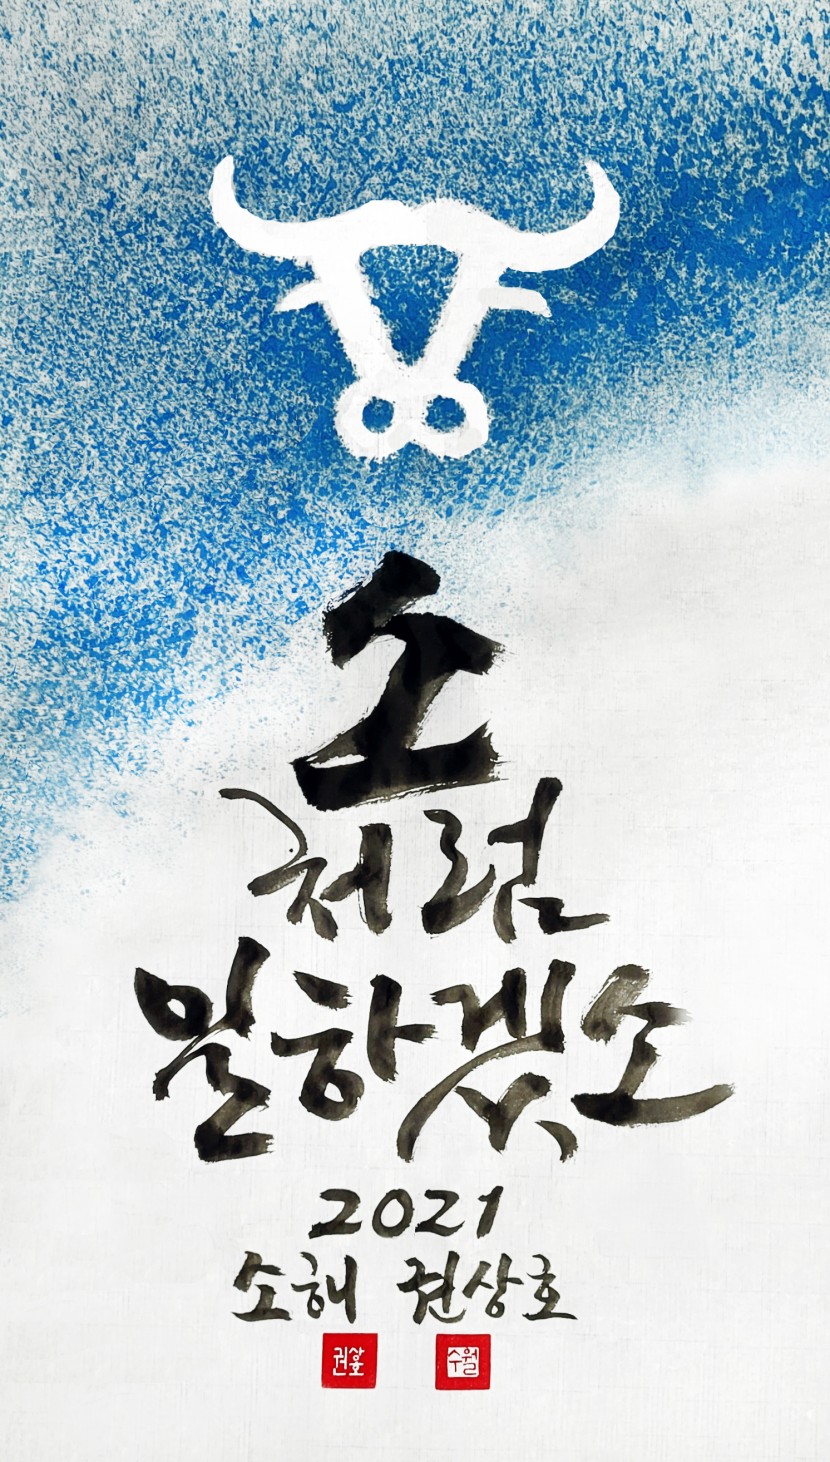 소
처럼
일하겠소
2021
소해 권상호
권상호 수월